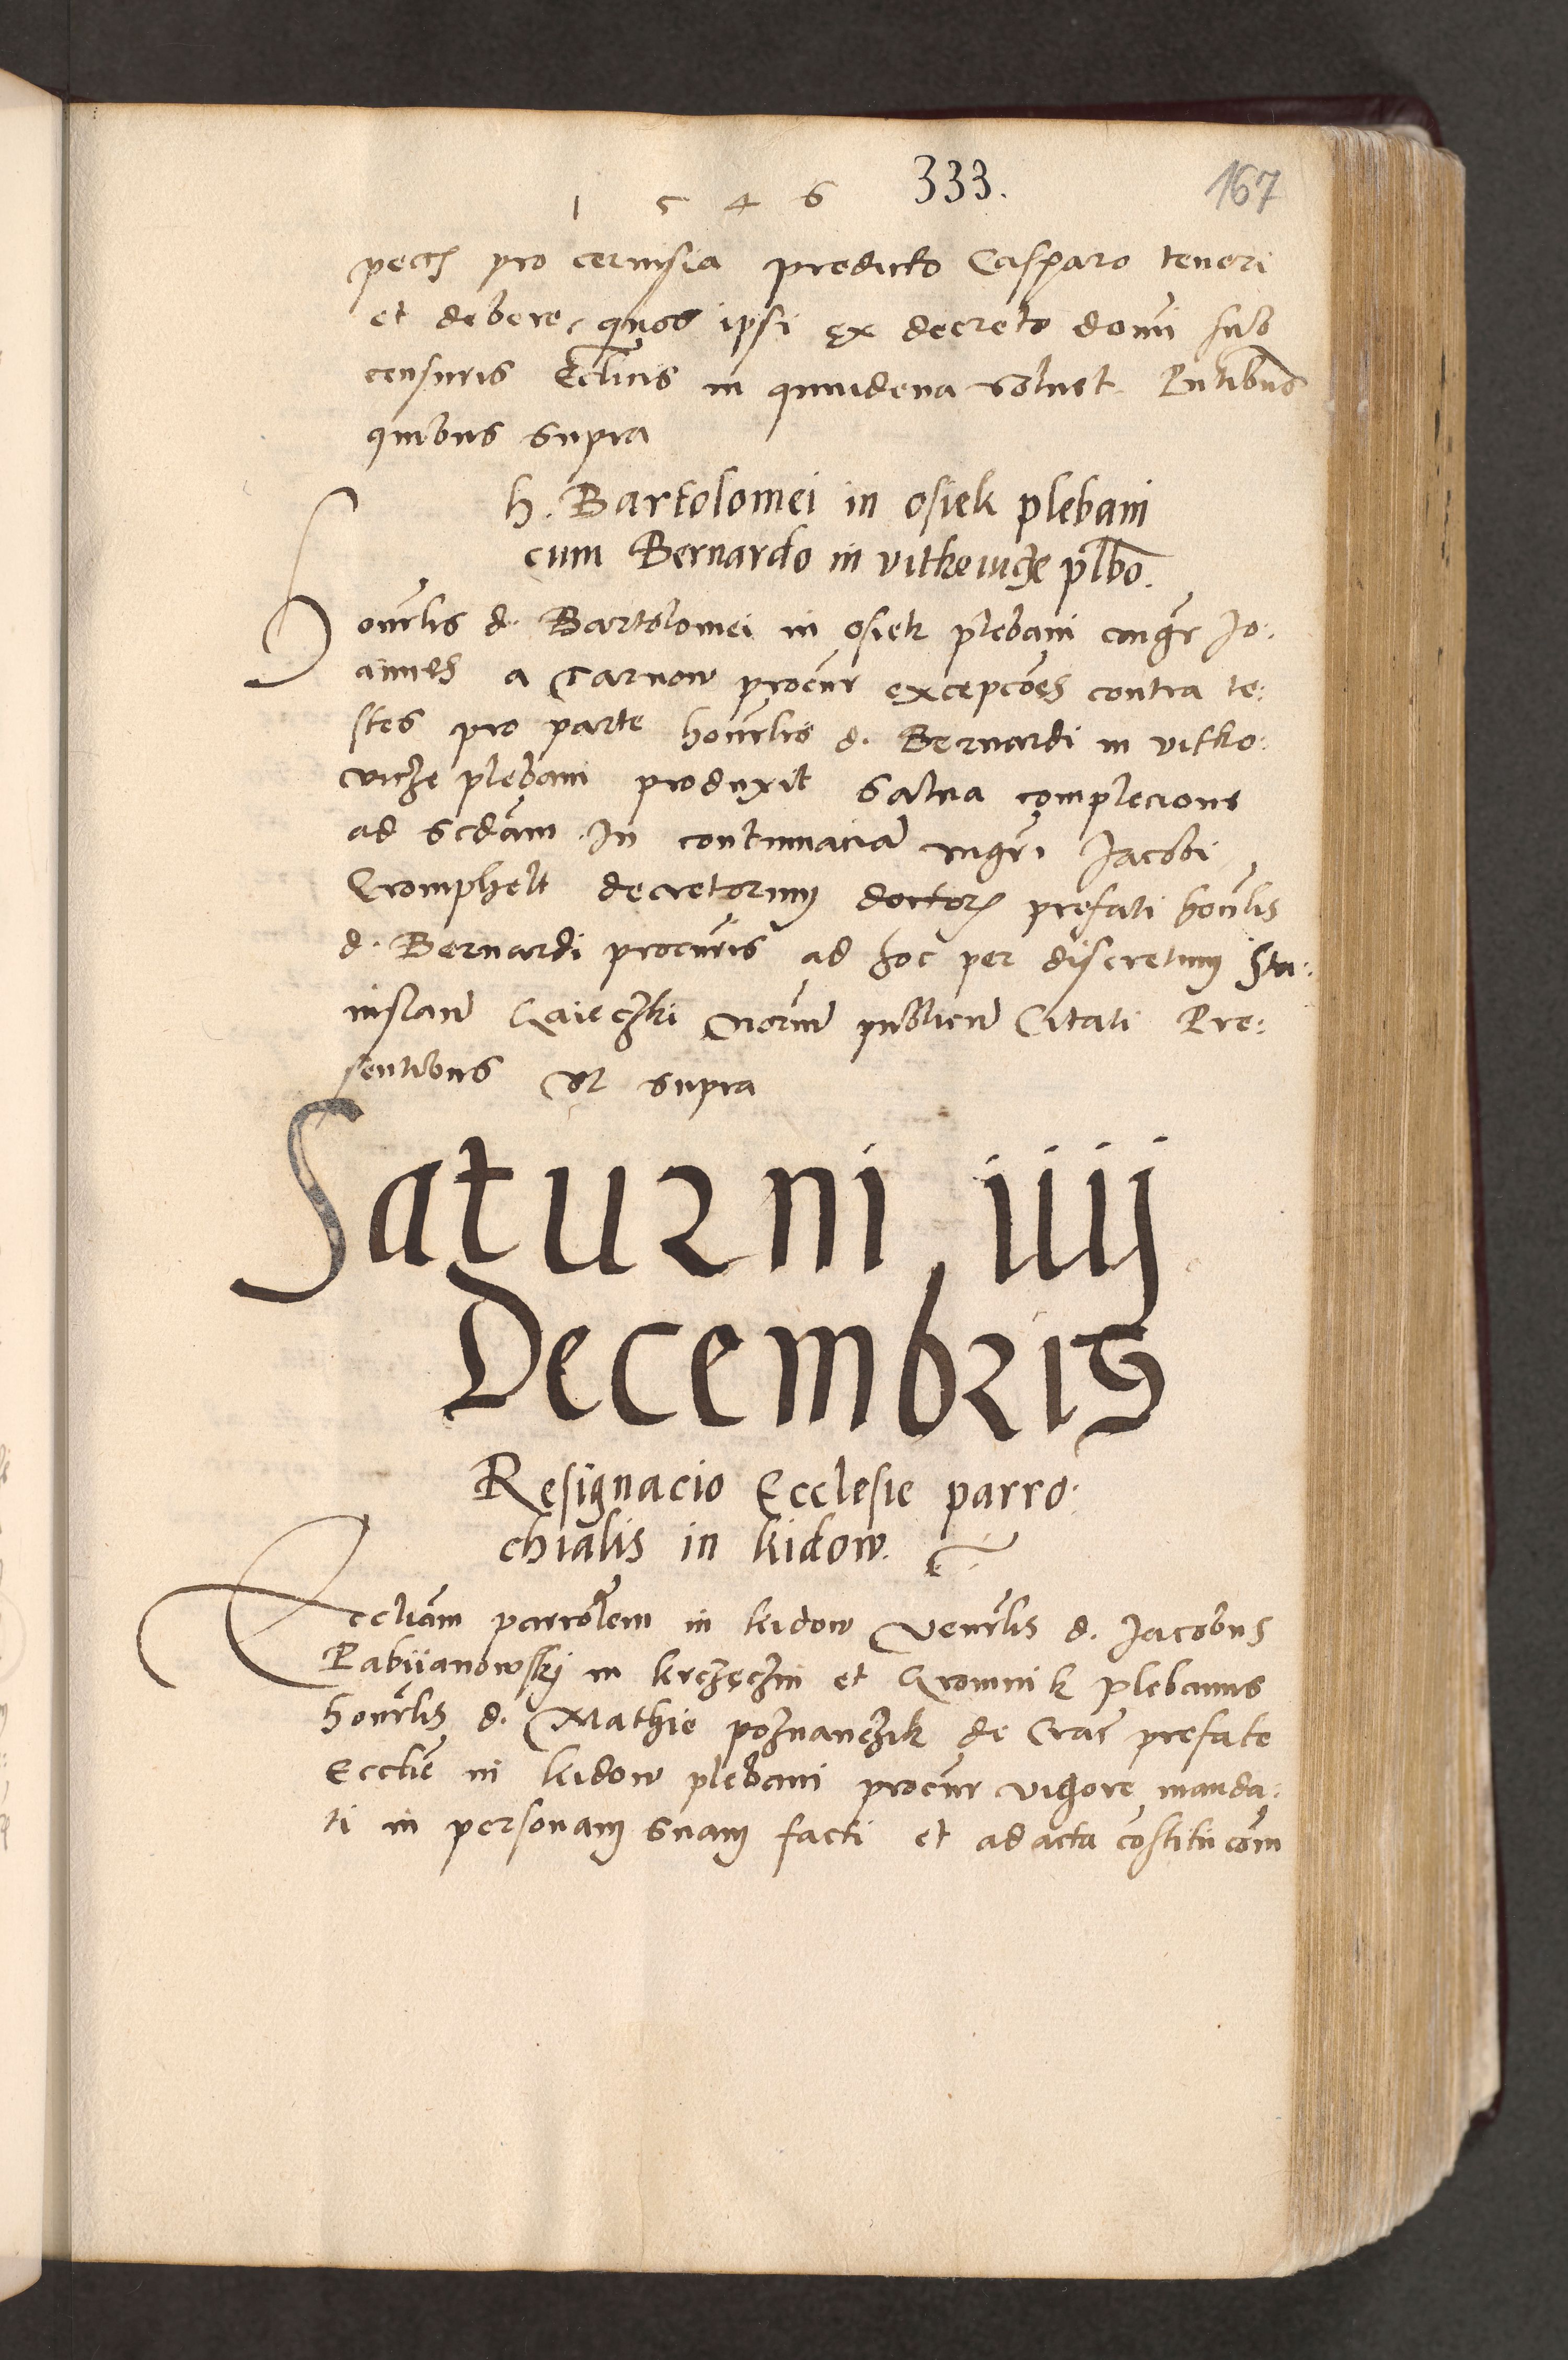 1 5 4 6 333. 167
pecc pro cervisia predicto Casparo teneri
et debere, quos ipsi ex decreto domi sub
censuris Eccliis in quindena solvet Pntibus
quibus supra
h. Bartolomei in osiek plebani
cum Bernardo in vitkowicze plbo.
Honrlis d. Bartolomei in osiek plebani Jo:
annes a Tarnow procur excepcoes contra te:
stes pro parte honrlis d. Bernardi in vitko:
vicze plebani produxit salva complecione
ad scdam In contumacia mgri Jacobi
Eromphelt decretorum doctor prefati honrlis
d. Bernardi procuris ad hoc per discretum Sta:
nislau notriu publicu Citati Pre:
sentibus vt supra
Saturni iiij
Decembris
Resignacio Ecclesie parro:
chialis in kidow.
Eccliam parrolem in kidow Venrlis d. Jacobus
Pabijanowskj in krczęczin et Gromnik plebanus
honrlis d. Mathie poznanczik de Crac prefate
Ecclie in kidow plebani procur vigore manda:
ti in personam suam facti et ad acta costitucom